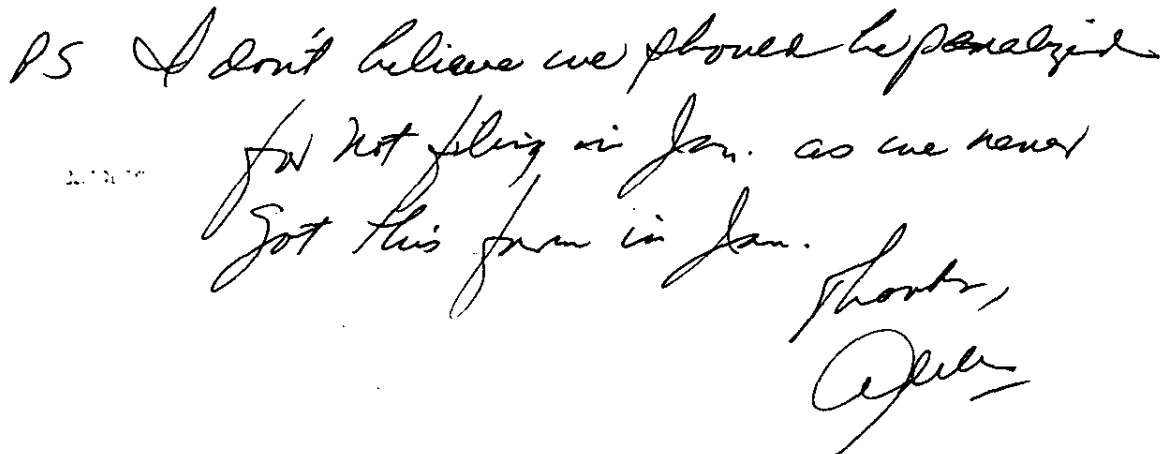 PS I don't believe we should be penalized
for not filing in Jan. as we never
got this form in Jan.
Thanks,